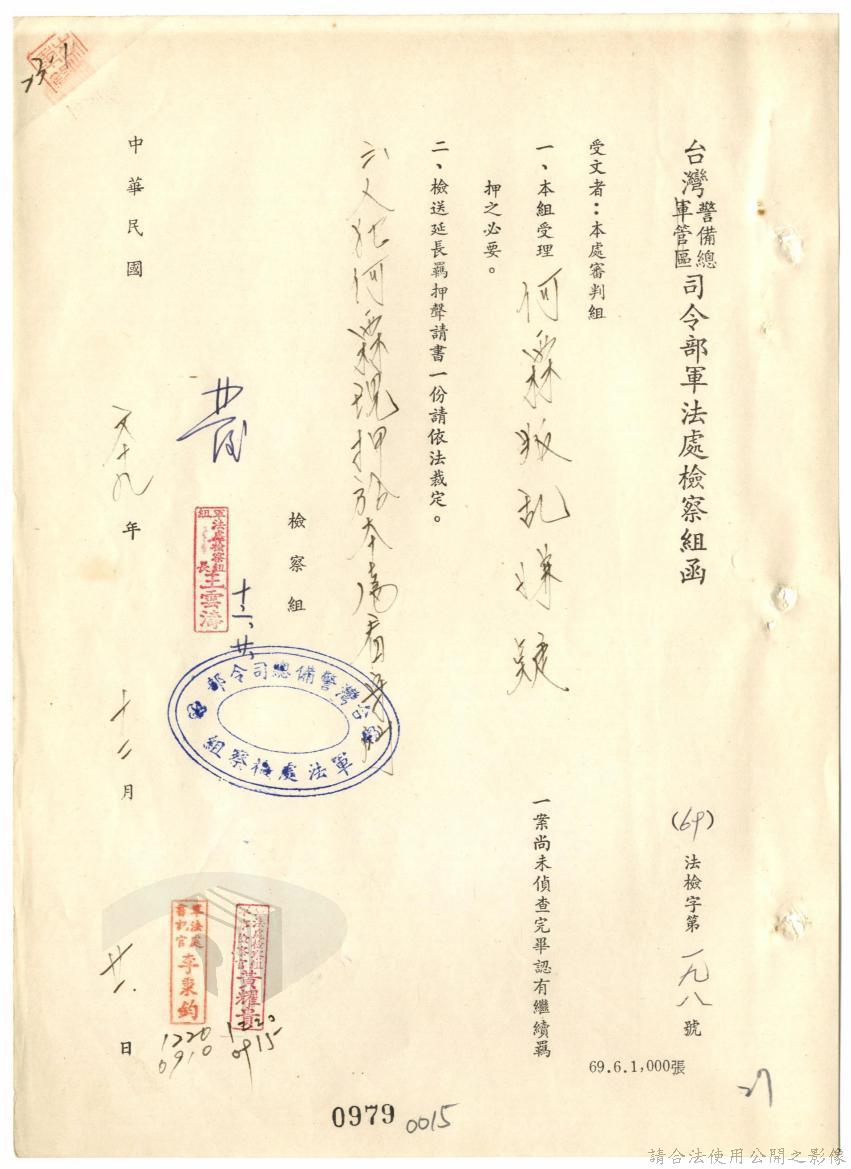 台灣警備總軍管區司令部軍法處檢察組函
(69)法檢字第一九八號
受文者：本處審判組
一、本組受理何霖叛乱嫌疑一案尚未偵查完畢認有繼續羈
押之必要。
二、檢送延長羈押聲請書一份請依法裁定。
六人犯何霖現押於本處看守所
檢察組
軍法處檢察組
組長王雲濤
十二、廿
台灣警備總司令部
軍法處檢察組
黃耀貴
1220
0915
軍法處
書記官李東鈞
1220
0910
中華民國六十九年十二月廿一日
69.6.1,000張
27
0979
0015
請合法使用公開之影像